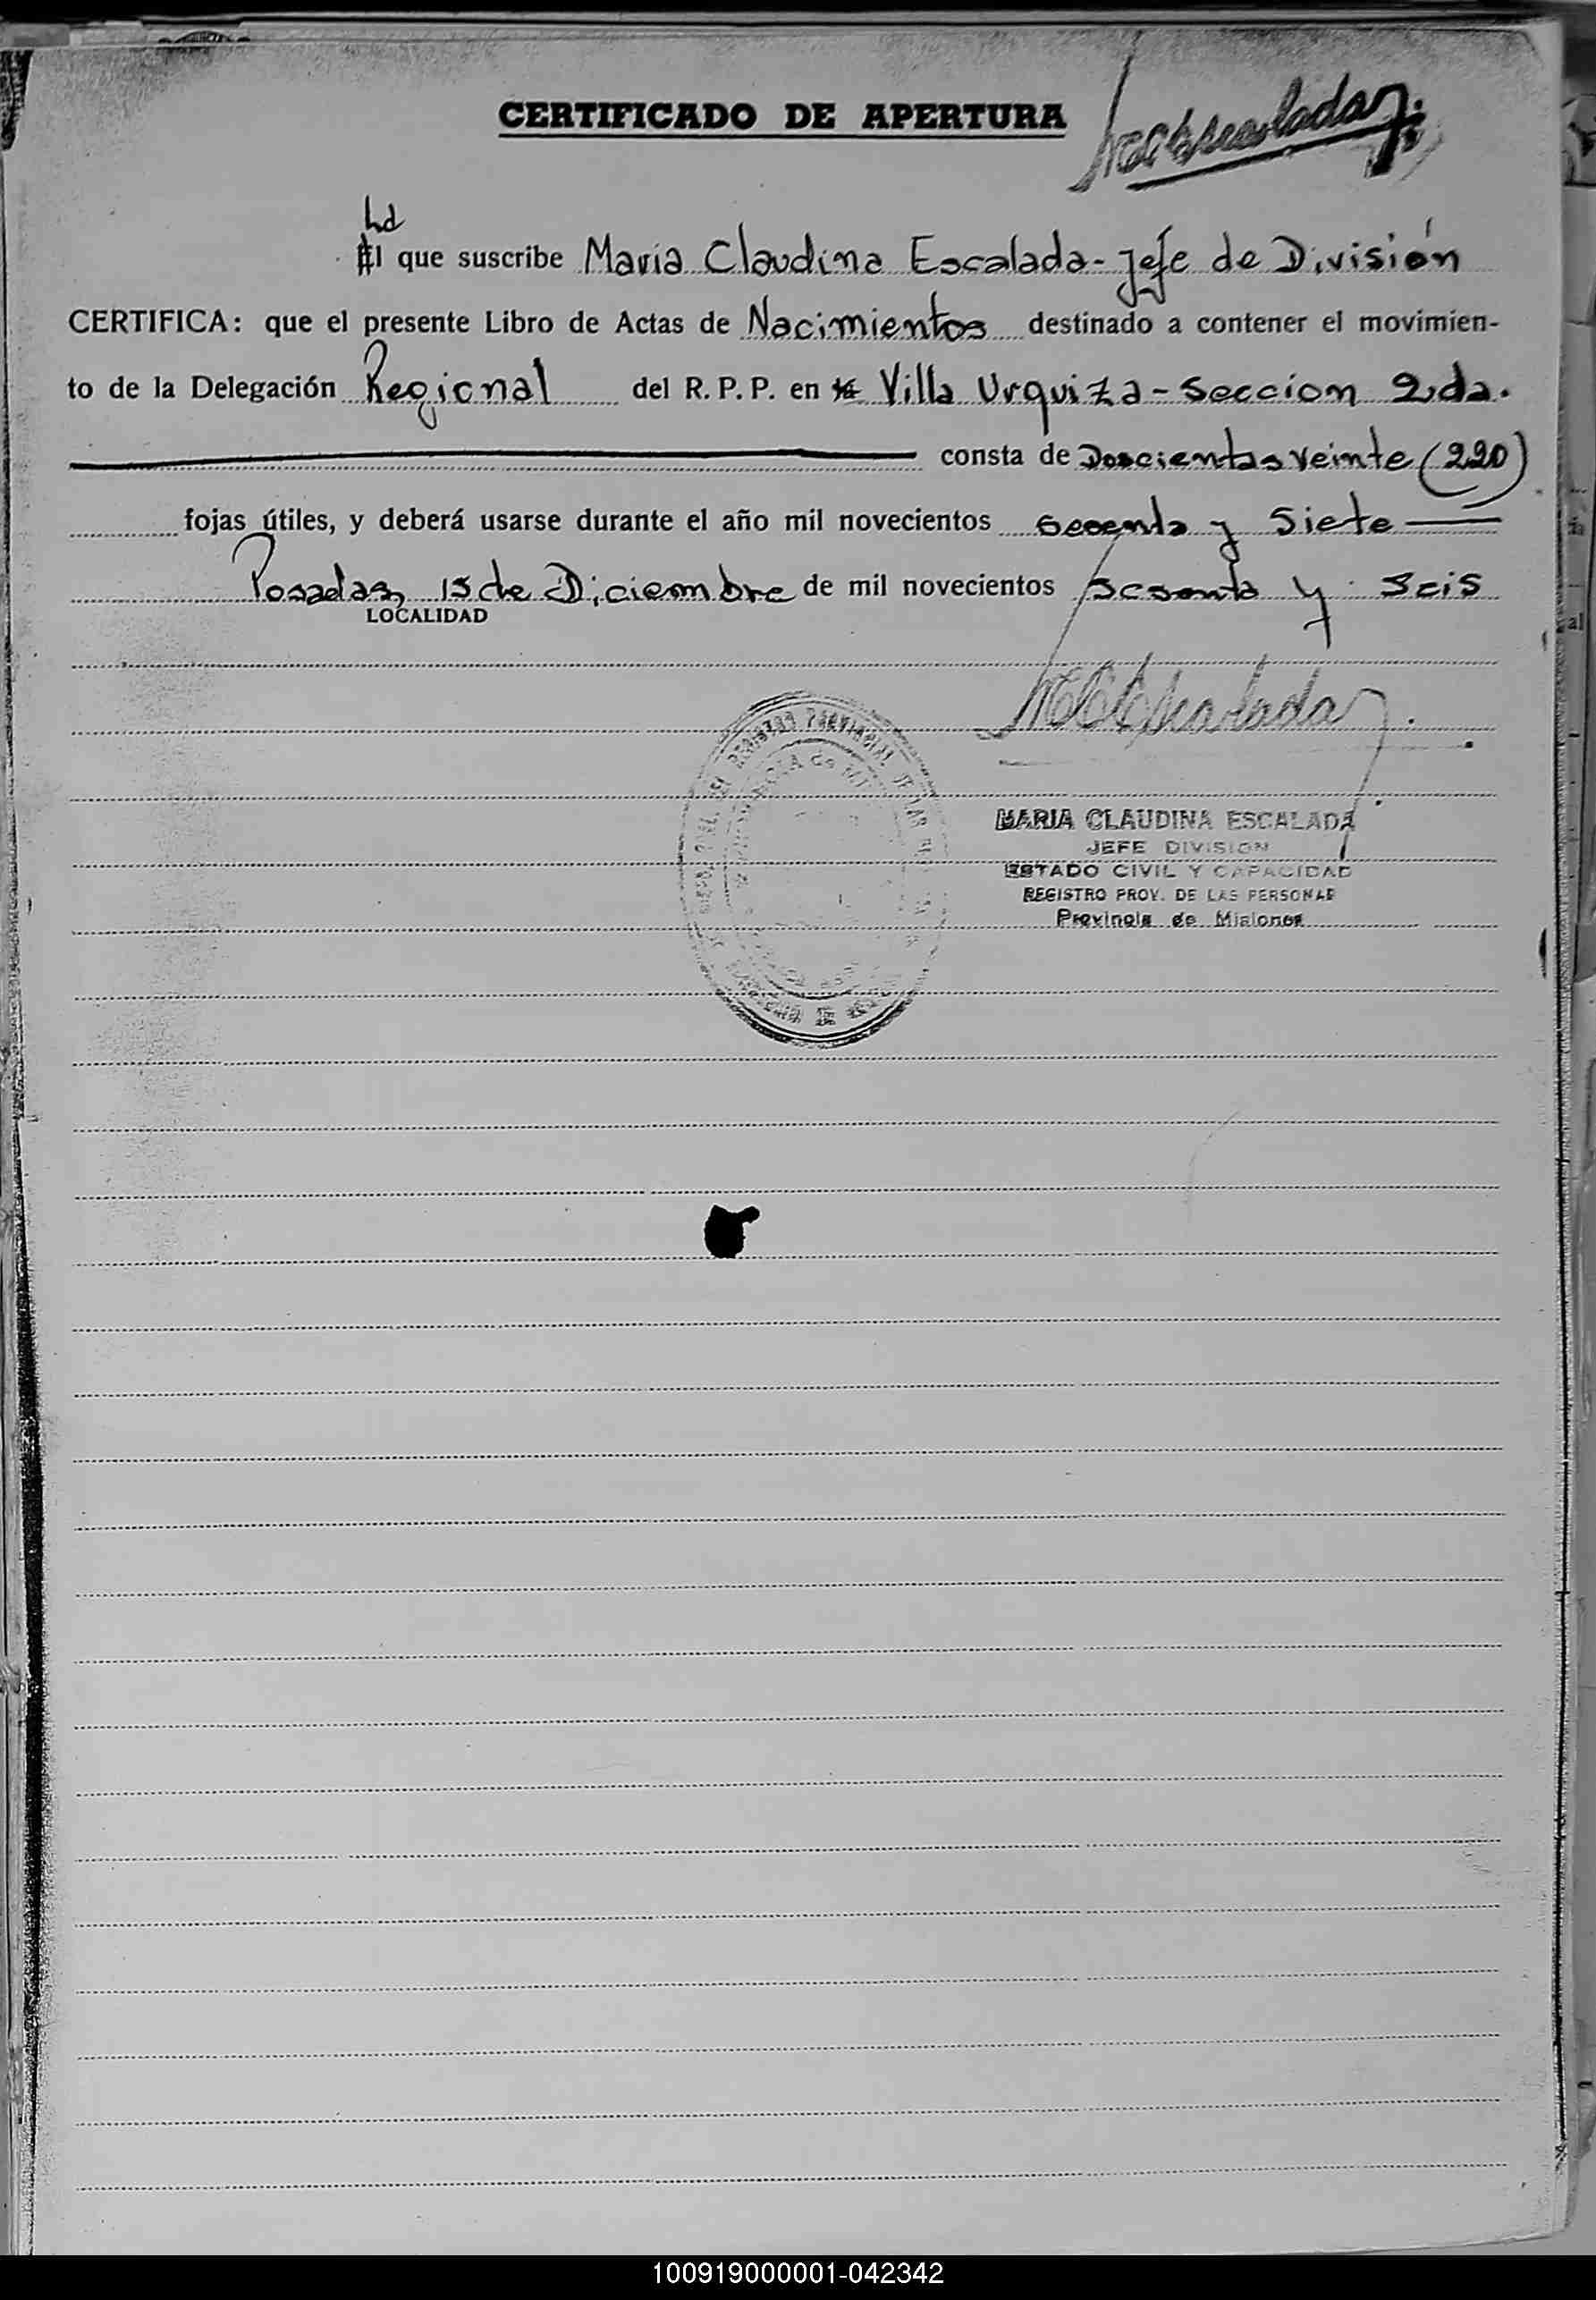 CERTIFICADO DE APERTURA
La
El que suscribe Maria Claudina Escalada - Jefe de División
CERTIFICA: que el presente Libro de Actas de Nacimientos destinado a contener el movimien-
to de la Delegación Regional del R. P. P. en Villa Urquiza - Seccion 2da.
consta de Doscientas veinte (220)
fojas útiles, y deberá usarse durante el año mil novecientos sesenta y Siete
Posadas, 15 de Diciembre de mil novecientos sesenta y seis
LOCALIDAD
MARIA CLAUDINA ESCALADA
JEFE DIVISION
ESTADO CIVIL Y CAPACIDAD
REGISTRO PROV. DE LAS PERSONAS
Provincia de Misiones
100919000001-042342